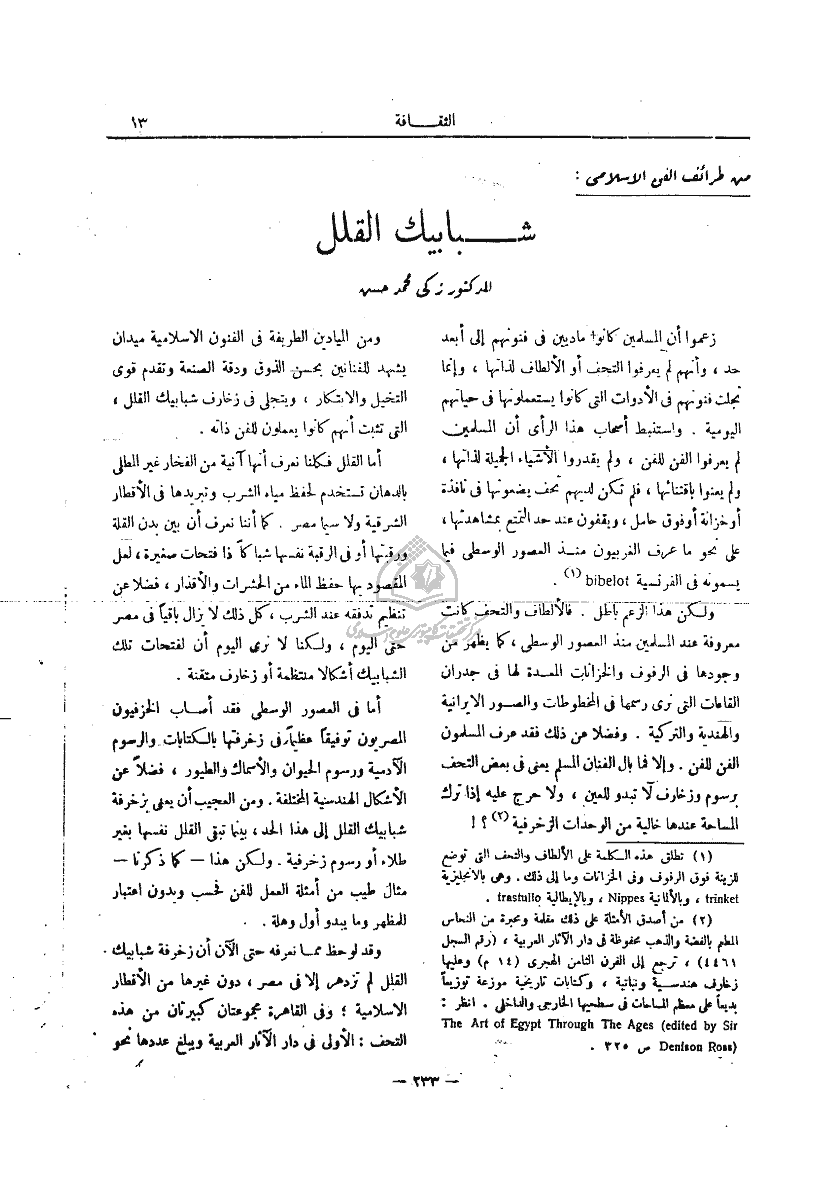 ١٣
الثقـــافة
من طرائف الفن الاسلامى :
شـــبابيك القلل
للدكتور زكى محمد حسن
زعموا أن المسلمين كانوا ماديين فى فنونهم إلى أبعد
حد ، وأنهم لم يعرفوا التحف أو الألطاف لذاتها ، وإنما
تجلت فنونهم فى الأدوات التى كانوا يستعملونها فى حياتهم
اليومية . واستنبط أصحاب هذا الرأى أن المسلمين
لم يعرفوا الفن للفن ، ولم يقدروا الأشياء الجميلة لذاتها ،
ولم يعنوا باقتنائها ، فلم تكن لديهم تحف يضعونها فى نافذة
أو خزانة أو فوق حامل ، ويقفون عند حد التمتع بمشاهدتها ،
على نحو ما عرف الغربيون منـذ العصور الوسطى فيما
يسمونه فى الفرنسية bibelot (١) .
ولكن هذا الزعم باطل . فالألطاف والتحف كانت
معروفة عند المسلمين منذ العصور الوسطى ، كما يظهر من
وجودها فى الرفوف والخزانات المعـدة لها فى جدران
القاعات التى نرى رسمها فى المخطوطات والصور الايرانية
والهندية والتركية . وفضلا عن ذلك فقد عرف المسلمون
الفن للفن . وإلا فما بال الفنان المسلم يعنى فى بعض التحف
برسوم وزخارف لا تبدو للعين ، ولا حرج عليه إذا ترك
المساحة عندها خالية من الوحدات الزخرفية (٢) ؟ !
(١) تطلق هذه الـكلمة على الألطاف والتحف التى توضع
للزينة فوق الرفوف وفى الخزانات وما إلى ذلك . وهى بالانجليزية
trinket ، وبالألمانية Nippes ، وبالايطالية trastullo .
(٢) من أصدق الأمثلة على ذلك مقلمة ومحبرة من النحاس
المطعم بالفضة والذهب محفوظة فى دار الآثار العربية ، (رقم السجل
٤٤٦١) ، ترجع إلى القرن الثامن الهجرى (١٤ م) وعليها
زخارف هندسـية ونباتية ، وكتابات تاريخية موزعة توزيعاً
بديعاً على معظم المساحات فى سطحيها الخارجى والداخلى . انظر :
The Art of Egypt Through The Ages (edited by Sir
Denison Ross) ص ٣٢٥ .
ومن الميادين الطريفة فى الفنون الاسلامية ميدان
يشهد للفنانين بحسن الذوق ودقة الصنعة وتقدم قوى
التخيل والابتكار ، ويتجلى فى زخارف شبابيك القلل ،
التى تثبت أنهم كانوا يعملون للفن ذاته .
أما القلل فكلنا نعرف أنها آنية من الفخار غير المطلى
بالدهان تستخدم لحفظ مياه الشرب وتبريدها فى الأقطار
الشرقية ولا سيما مصر . كما أننا نعرف أن بين بدن القلة
ورقبتها أو فى الرقبة نفسها شباكاً ذا فتحات صغيرة ، لعل
المقصود بها حفظ الماء من الحشرات والأقذار ، فضلا عن
تنظيم تدفقه عند الشرب ، كل ذلك لا يزال باقياً فى مصر
حتى اليوم ، ولكنا لا نرى اليوم أن لفتحات تلك
الشبابيك أشكالا منتظمة أو زخارف متقنة .
أما فى العصور الوسطى فقد أصاب الخزفيون
المصريون توفيقاً عظيماً فى زخرفتها بالكتابات والرسوم
الآدمية ورسوم الحيوان والأسماك والطيور ، فضلاً عن
الأشكال الهندسية المختلفة . ومن العجيب أن يعنى بزخرفة
شبابيك القلل إلى هذا الحد ، بينما تبقى القلل نفسها بغير
طلاء أو رسوم زخرفية . ولكن هذا — كما ذكرنا —
مثال طيب من أمثلة العمل للفن فحسب وبدون اعتبار
للمظهر وما يبدو أول وهلة .
وقد لوحظ ممـا نعرفه حتى الآن أن زخرفة شبابيك
القلل لم تزدهر إلا فى مصر ، دون غيرها من الأقطار
الاسلامية ؛ وفى القاهرة مجموعتان كبيرتان من هذه
التحف : الأولى فى دار الآثار العربية ويبلغ عددها نحو
— ٢٣٣ —